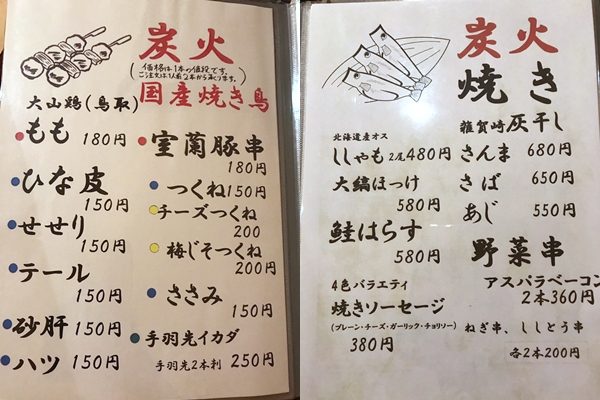 炭火
(価格は1本の値段です。
ご注文は1人前2本から承ります。)
国産焼き鳥
大山鶏(鳥取)
もも 180円
ひな皮
150円
せせり
150円
テール
150円
砂肝 150円
ハツ 150円
室蘭豚串
180円
つくね 150円
チーズつくね
200
梅じそつくね
200円
ささみ
150円
手羽先イカダ
手羽先2本刺 250円
炭火
焼き
北海道産オス
ししゃも 2尾 480円
大縞ほっけ
580円
鮭はらす
580円
4色バラエティ
焼きソーセージ
(プレーン・チーズ・ガーリック・チョリソー)
380円
雑賀崎灰干し
さんま 680円
さば 650円
あじ 550円
野菜串
アスパラベーコン
2本360円
ねぎ串、ししとう串
各2本200円